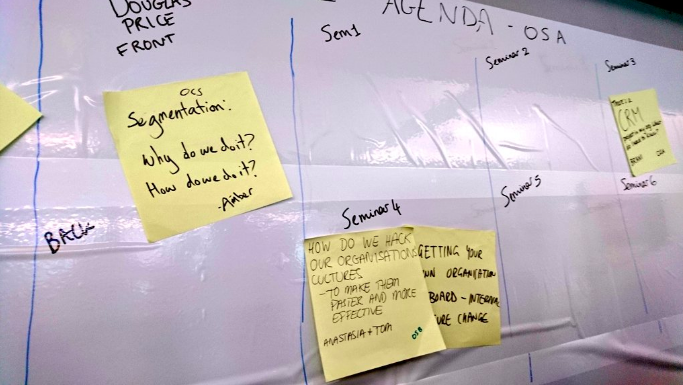 DOUGLAS
PRICE
FRONT
AGENDA - OSA
Sem1
Seminar 2
Seminar 3
OCS
Segmentation:
Why do we do it?
How do we do it?
- Amber
CRM
BACK
Seminar 4
Seminar 5
Seminar 6
HOW DO WE HACK
OUR ORGANISATIONS
CULTURES
- TO MAKE THEM
FASTER AND MORE
EFFECTIVE
ANASTASIA + TOM
GETTING YOUR
WN ORGANISATION
BOARD - INTERNAL
URE CHANGE